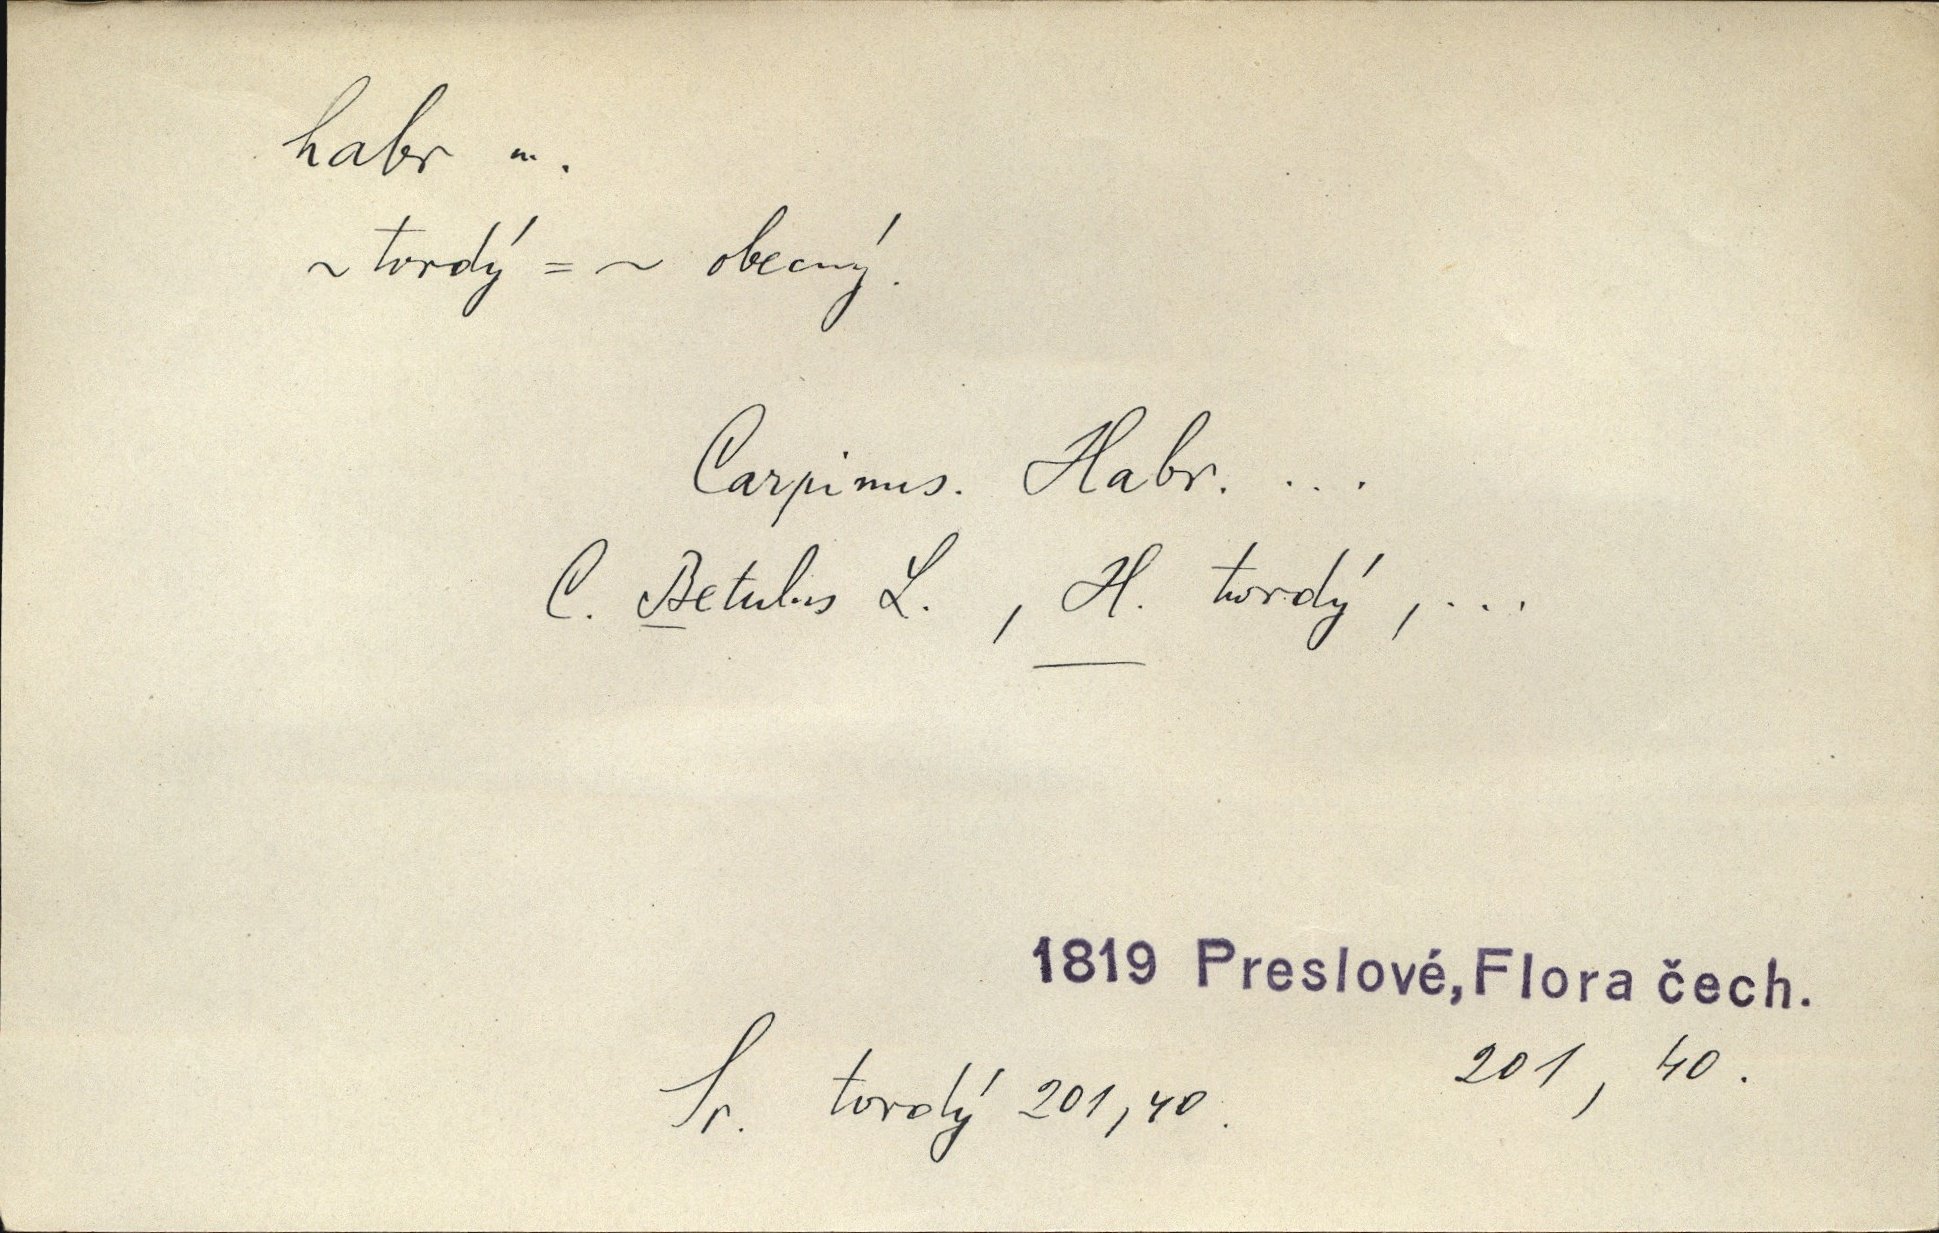 habr m.
~ tvrdý = ~ obecný.
Carpinus. Habr. ...
C. Betulus L. , H. tvrdý , ...
1819 Preslové, Flora čech.
201, 40.
Sr. tvrdý 201, 40.